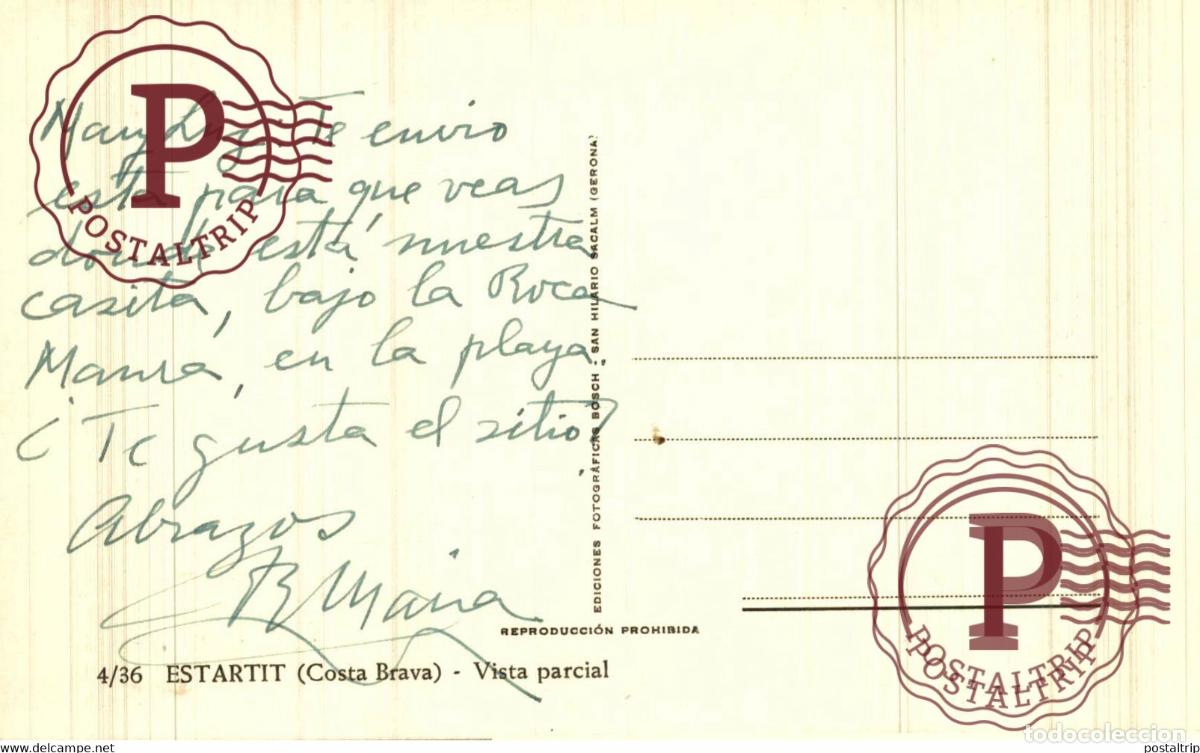 Te envio
esta para que veas
donde está nuestra
casita, bajo la Roca
Maura, en la playa
¿Te gusta el sitio?
Abrazos
Maria
EDICIONES FOTOGRÁFICAS BOSCH - SAN HILARIO SACALM (GERONA)
REPRODUCCIÓN PROHIBIDA
4/36 ESTARTIT (Costa Brava) - Vista parcial
P
POSTALTRIP
P
POSTALTRIP
POSTALTRIP
todocoleccion
www.delcampe.net
postaltrip